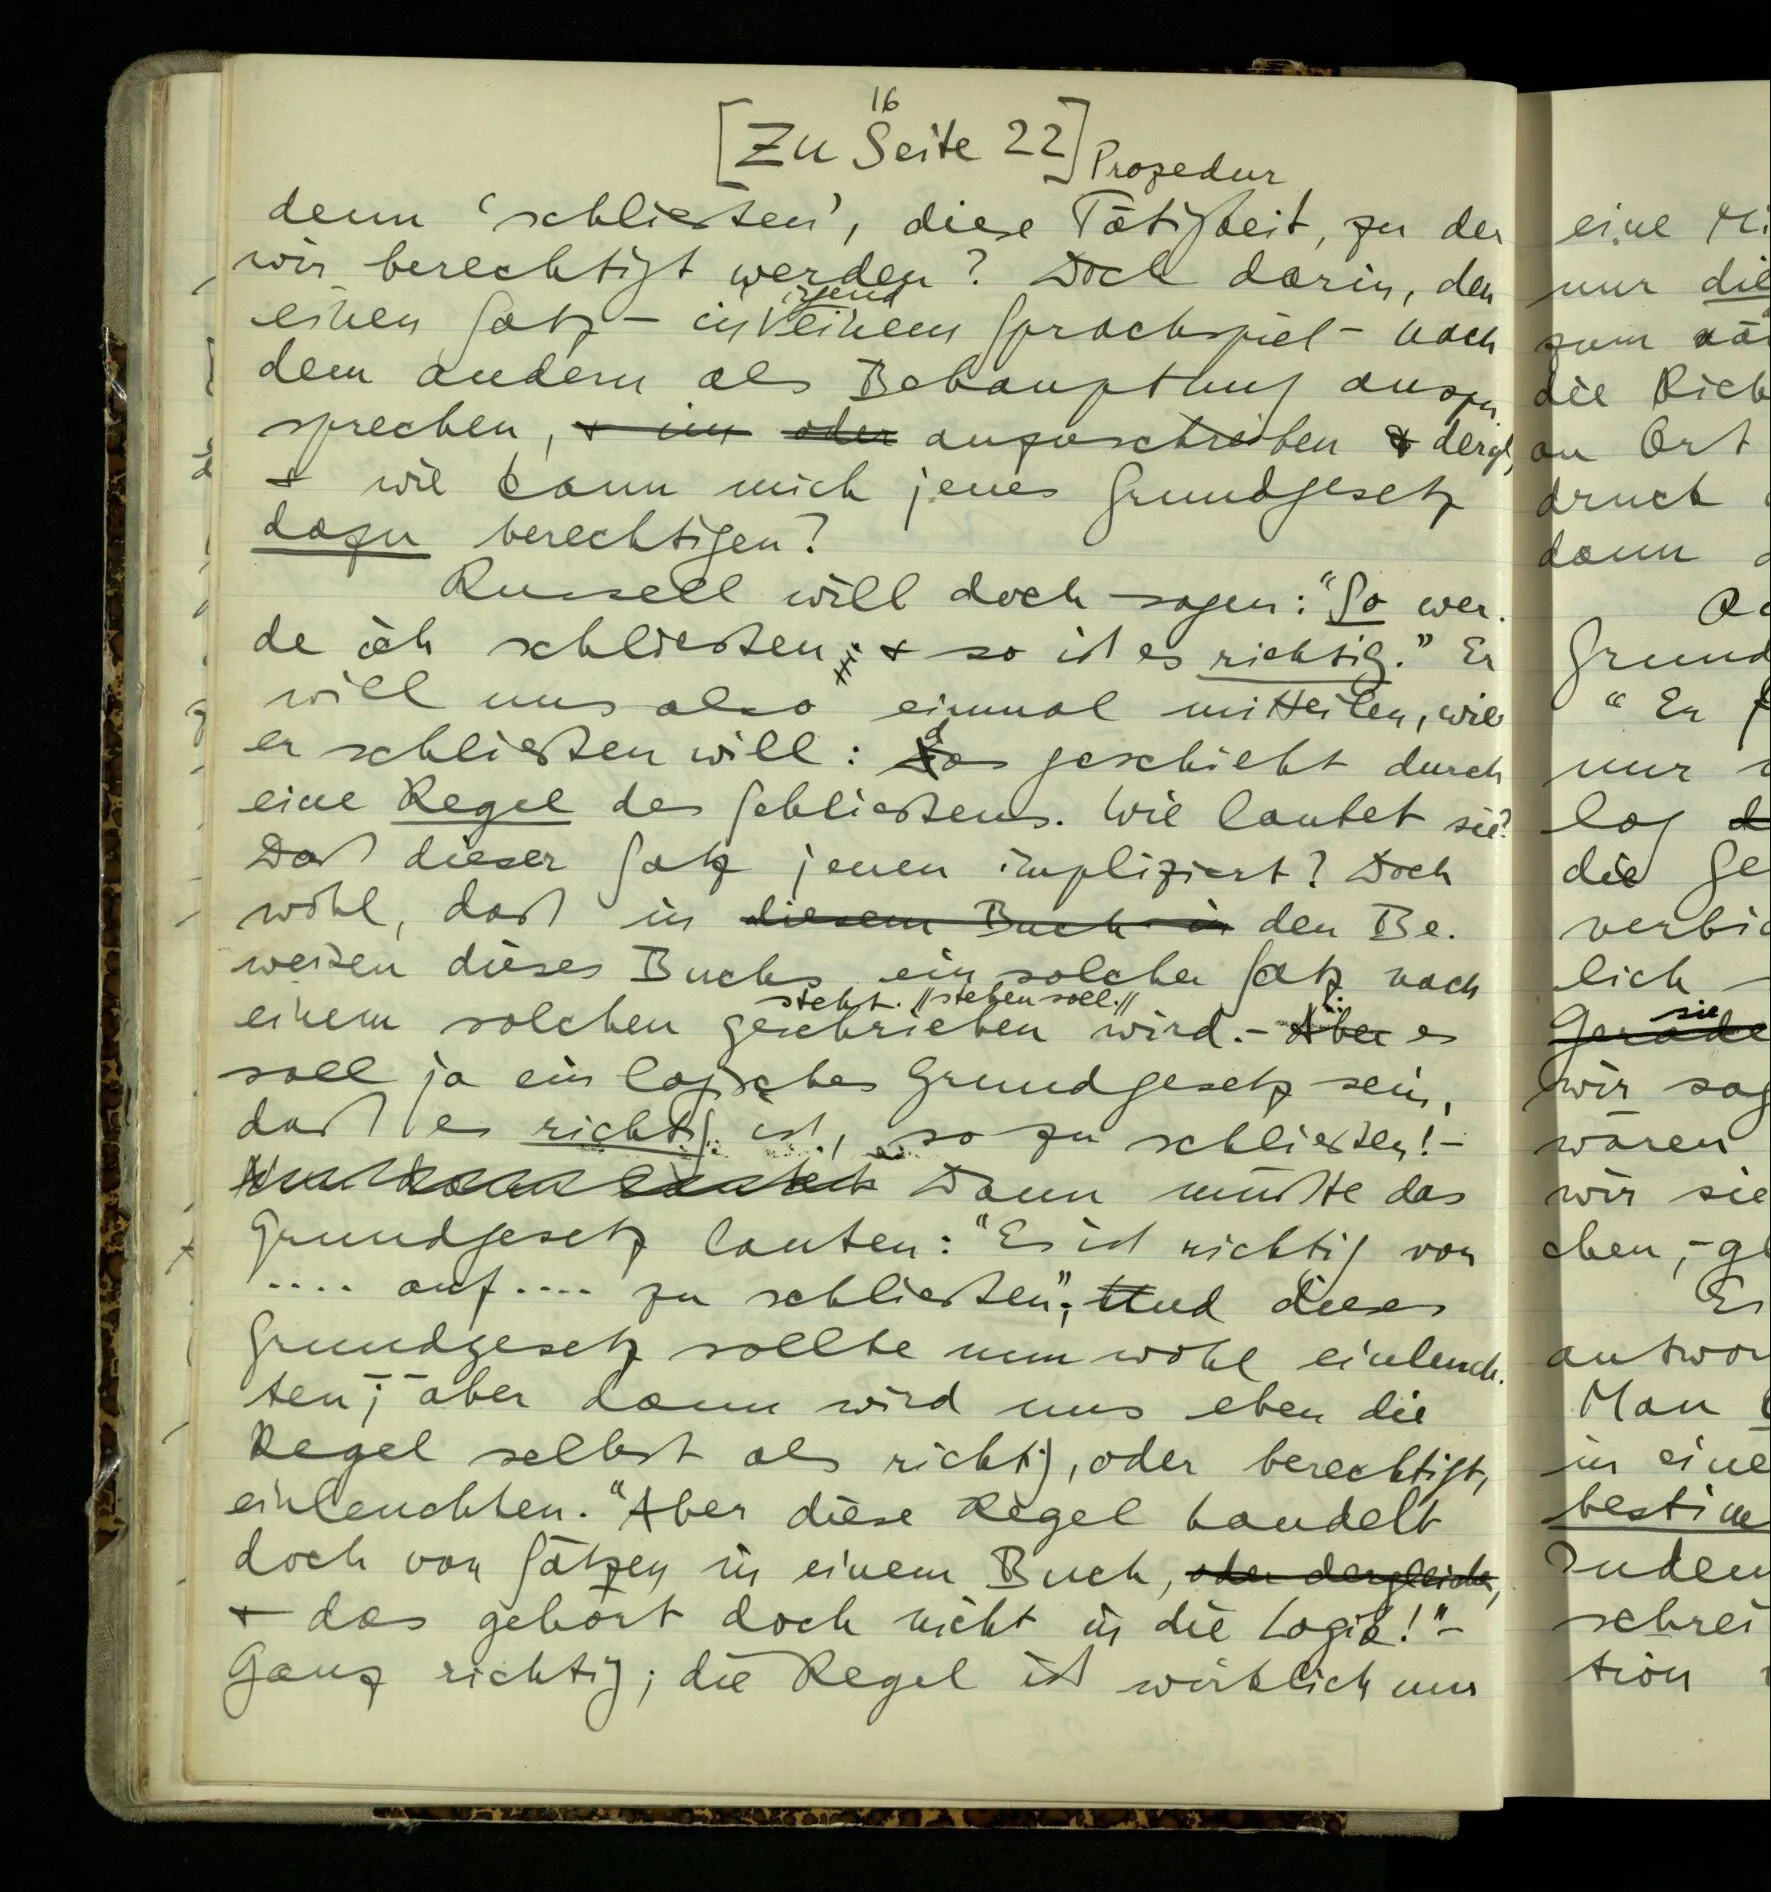 16
[Zu Seite 22]
Prozedur
denn ‘schließen’, diese Tätigkeit, zu der
wir berechtigt werden? Doch darin, den
irgend
einen Satz – in einem Sprachspiel – nach
dem andern als Behauptung auszu
sprechen, + im oder anzuschreiben & dergl,
+ wie kann mich jenes Grundgesetz
dazu berechtigen?
Russell will doch sagen: “So wer-
de ich schließen, + so ist es richtig.” Er
will uns also einmal mitteilen, wie
er schließen will: das geschieht durch
eine Regel des Schließens. Wie lautet sie?
Daß dieser Satz jenen impliziert? Doch
wohl, daß in diesem Buch in den Be-
weisen dieses Buchs ein solcher Satz nach
steht. //stehen soll.//
einem solchen geschrieben wird. – Aber es
soll ja ein logisches Grundgesetz sein,
daß es richtig ist, so zu schließen! –
Dann müßte das
Grundgesetz lauten: “Es ist richtig von
.... auf .... zu schließen”; Und dieses
Grundgesetz sollte nun wohl einleuch-
ten; – aber dann wird uns eben die
Regel selbst als richtig, oder berechtigt,
einleuchten. “Aber diese Regel handelt
doch von Sätzen in einem Buch, oder dergleichen,
+ das gehört doch nicht in die Logik!” –
Ganz richtig; die Regel ist wirklich nur
eine Mi
nur die
zum
die Rich
an Ort
druck
dann
Grund
“Er
nur
log d
die Ge
verbi
lich –
sie
Gerade
wir sag
wären
wir sie
chen, – gl
Er
antwor
Man
in eine
bestim
Indem
schrei
tion